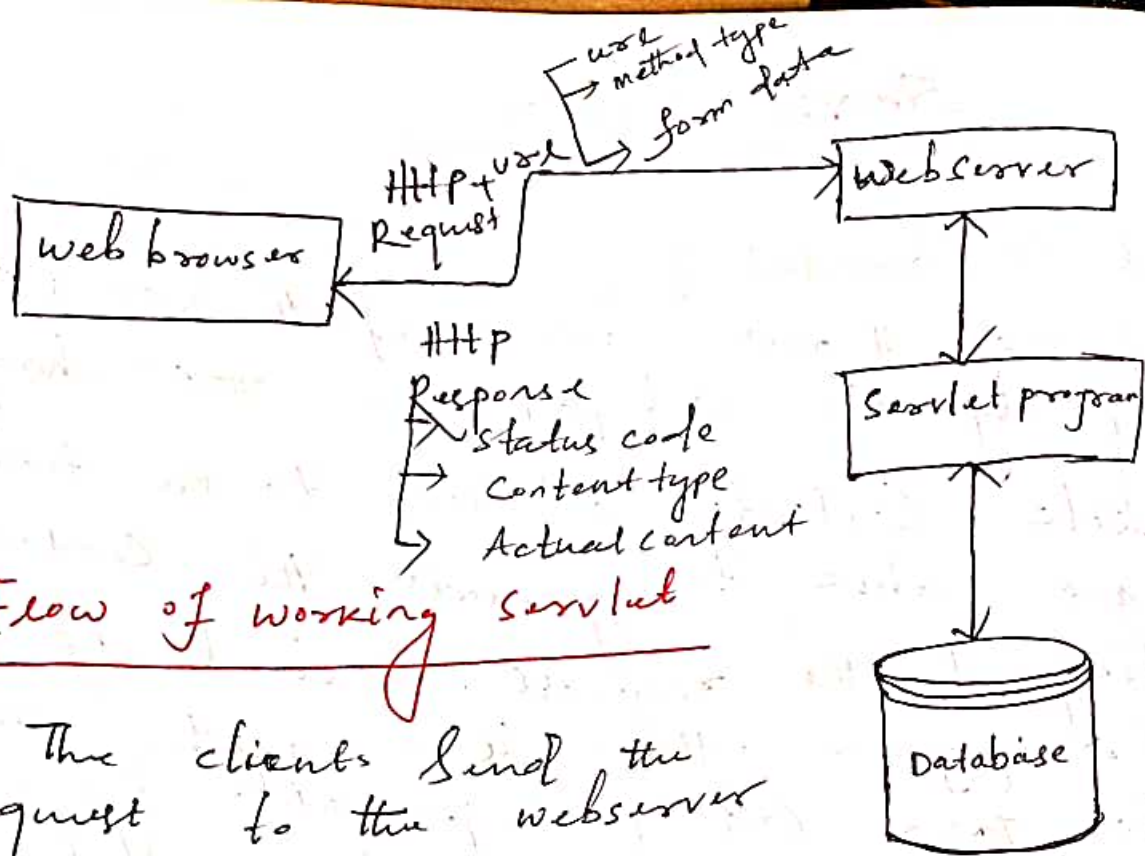 url
method type
form data
HTTP + url
Request
web browser
webserver
HTTP
Response
status code
Content type
Actual content
Servlet program
Flow of working servlet
The clients Send the
quest to the webserver
Database